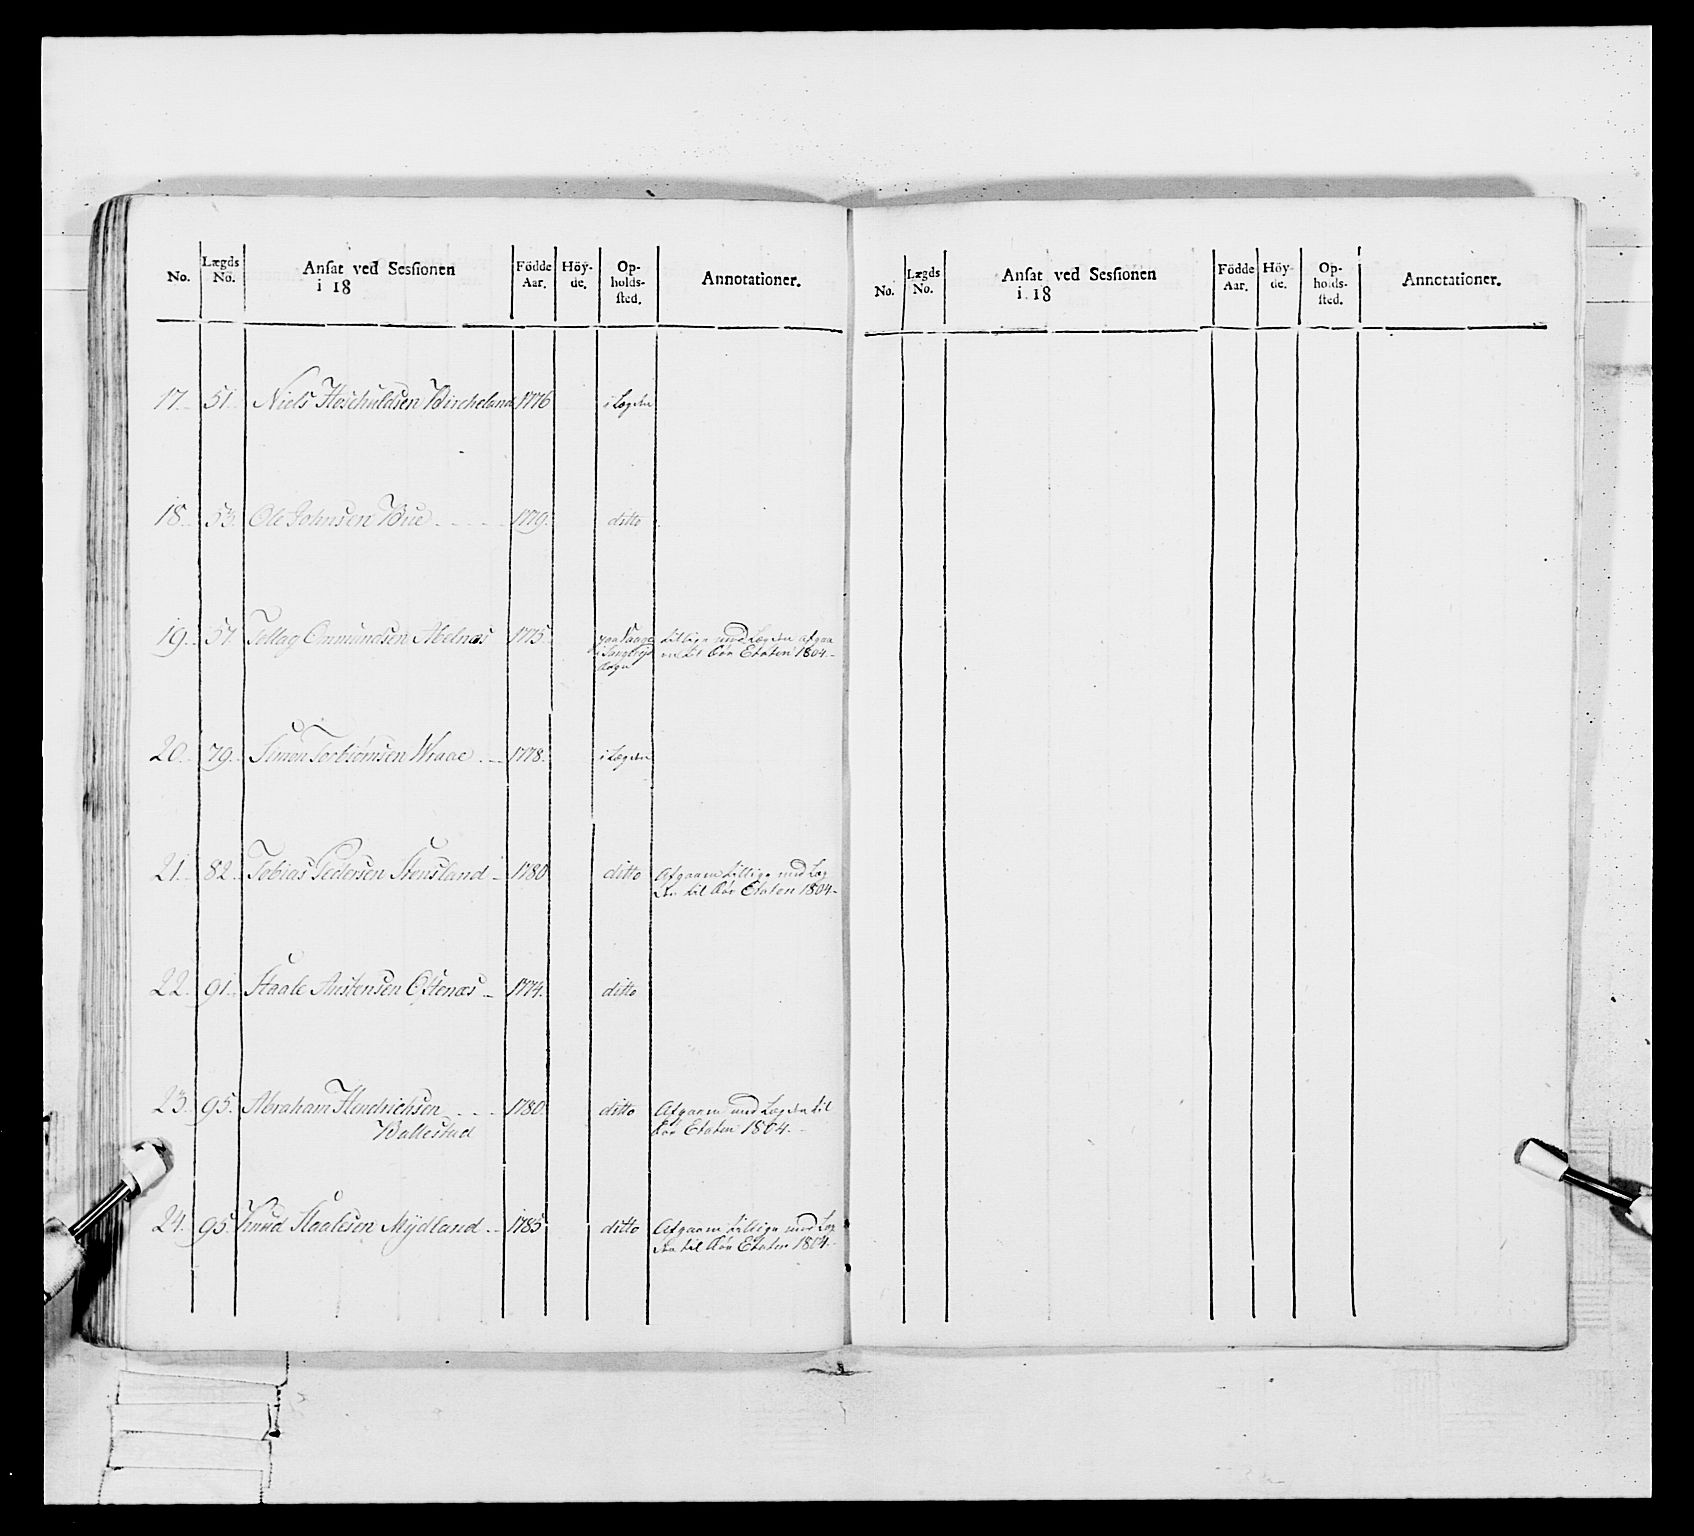 No. Lægds No. Ansat ved Sessionen i 18 Födde Aar. Höy-de. Op-holds-sted. Annotationer.
17. 51. Niels Hoschuldsen Bircheland 1776 i Lægden
18. 53. Ole Johnsen Bue 1779. ditto
19. 57. Tollag Onmundsen Abelnæs 1775. tillige med Lægden afgaa
en til Söe Etaten 1804.
20. 79. Simon Torbiörnsen Wraae 1778. i Lægden
21. 82. Tobias Pedersen Stensland 1780 ditto Afgaaen tillige med Læg
den til Söe Etaten 1804
22. 91. Staale Austensen Ostenæs 1774. ditto
23. 95. Abraham Hendrichsen 1780. ditto Afgaaen med Lægden til
Ballestad Söe Etaten 1804.
24. 95. Knud Staalesen Mÿdland 1785 ditto Afgaaen tillige med Læg
den til Söe Etaten 1804.
No. Lægds No. Ansat ved Sessionen i 18 Födde Aar. Höy-de. Op-holds-sted. Annotationer.